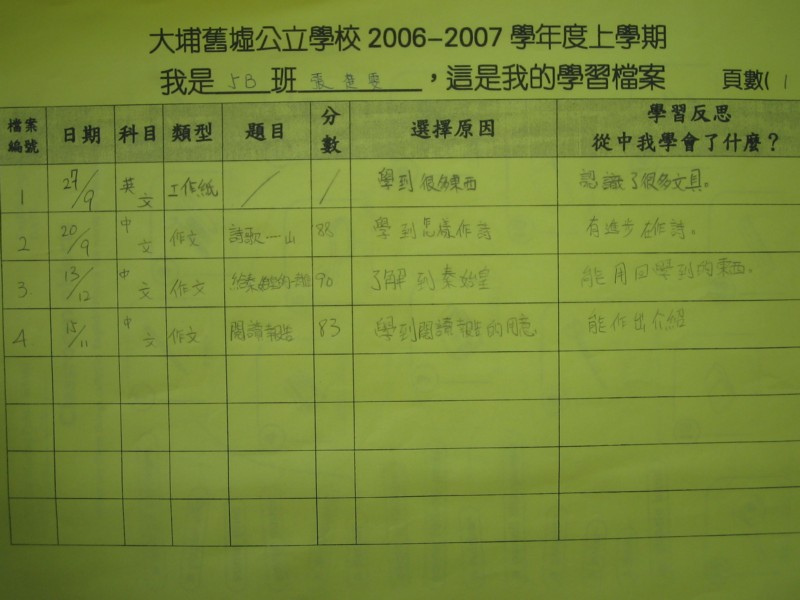 大埔舊墟公立學校 2006-2007 學年度上學期
我是 5B 班 張進雯 ，這是我的學習檔案 頁數( 1
檔案編號 日期 科目 類型 題目 分數 選擇原因 學習反思 從中我學會了什麼？
1 27/9 英文 工作紙 / / 學到很多東西 認識了很多文具。
2 20/9 中文 作文 詩歌—山 88 學到怎樣作詩 有進步在作詩。
3. 13/12 中文 作文 給秦始皇的一封信 90 了解到秦始皇 能用回學到的東西。
4 15/11 中文 作文 閱讀報告 83 學到閱讀報告的用意 能作出介紹